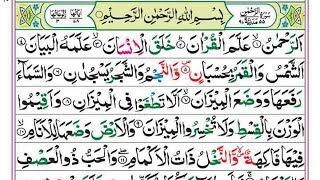 بِسْمِ اللّٰهِ الرَّحْمٰنِ الرَّحِيْمِ
اَلرَّحْمٰنُ ۙ﴿۱﴾ عَلَّمَ الْقُرْاٰنَ ؕ﴿۲﴾ خَلَقَ الْاِنْسَانَ ۙ﴿۳﴾ عَلَّمَهُ الْبَيَانَ ﴿۴﴾
اَلشَّمْسُ وَالْقَمَرُ بِحُسْبَانٍ ۪﴿۵﴾ وَّالنَّجْمُ وَالشَّجَرُ يَسْجُدٰنِ ﴿۶﴾ وَالسَّمَآءَ
رَفَعَهَا وَوَضَعَ الْمِيْزَانَ ۙ﴿۷﴾ اَلَّا تَطْغَوْا فِى الْمِيْزَانِ ﴿۸﴾ وَاَقِيْمُوا
الْوَزْنَ بِالْقِسْطِ وَلَا تُخْسِرُوا الْمِيْزَانَ ﴿۹﴾ وَالْاَرْضَ وَضَعَهَا لِلْاَنَامِ ۙ﴿۱۰﴾
فِيْهَا فَاكِهَةٌ ۪ۙ وَّالنَّخْلُ ذَاتُ الْاَكْمَامِ ۖ﴿۱۱﴾ وَالْحَبُّ ذُو الْعَصْفِ